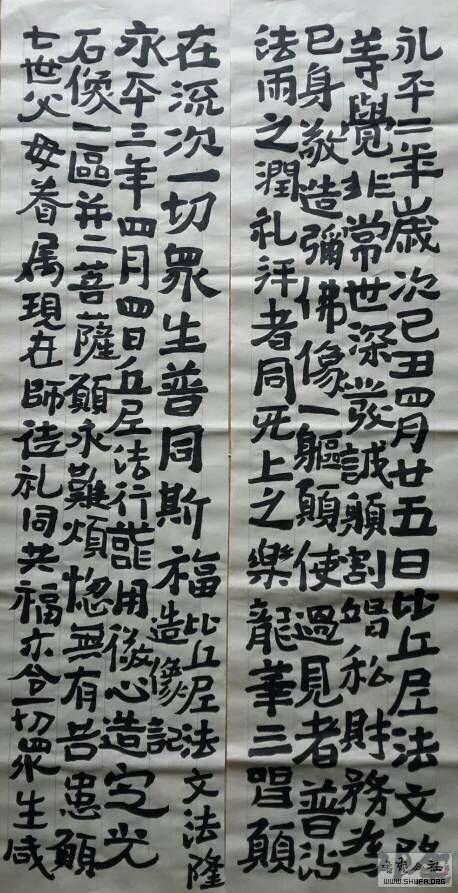 永平二年歲次己丑四月廿五日比丘尼法文隆
等覺非常世深發誠願割竭私財務為
已身敬造彌佛像一軀願使過見者普沾
法雨之潤礼拜者同无上之樂龍華三唱願
在流次一切眾生普同斯福 比丘尼法文法隆
造像記
永平三年四月四日丘尼法行用微心造定光
石像一區并二菩薩願永難煩惚無有苦患願
七世父母眷属現在師徒礼同共福亦令一切眾生咸
WWW.SHUFA.ORG